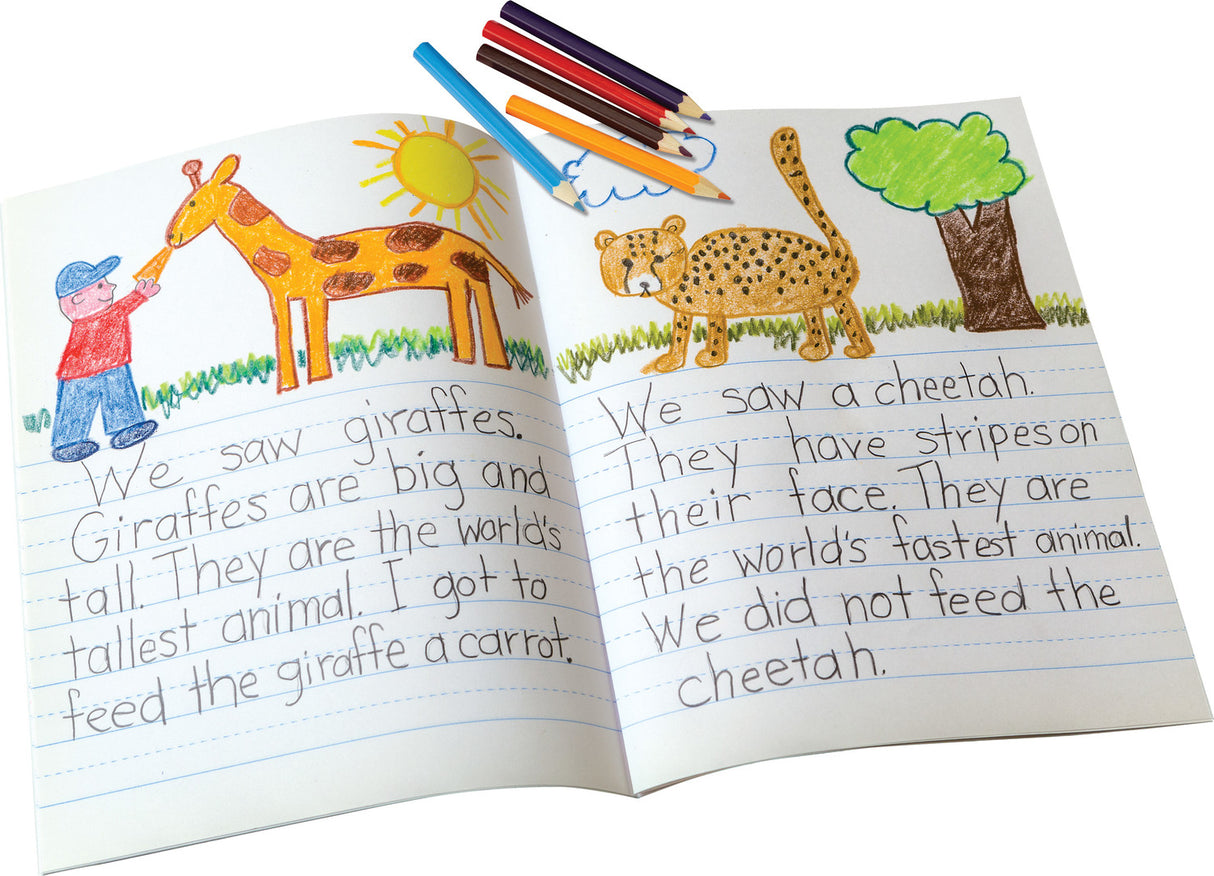 We saw giraffes.
Giraffes are big and
tall. They are the world's
tallest animal. I got to
feed the giraffe a carrot.
We saw a cheetah.
They have stripes on
their face. They are
the world's fastest animal.
We did not feed the
cheetah.